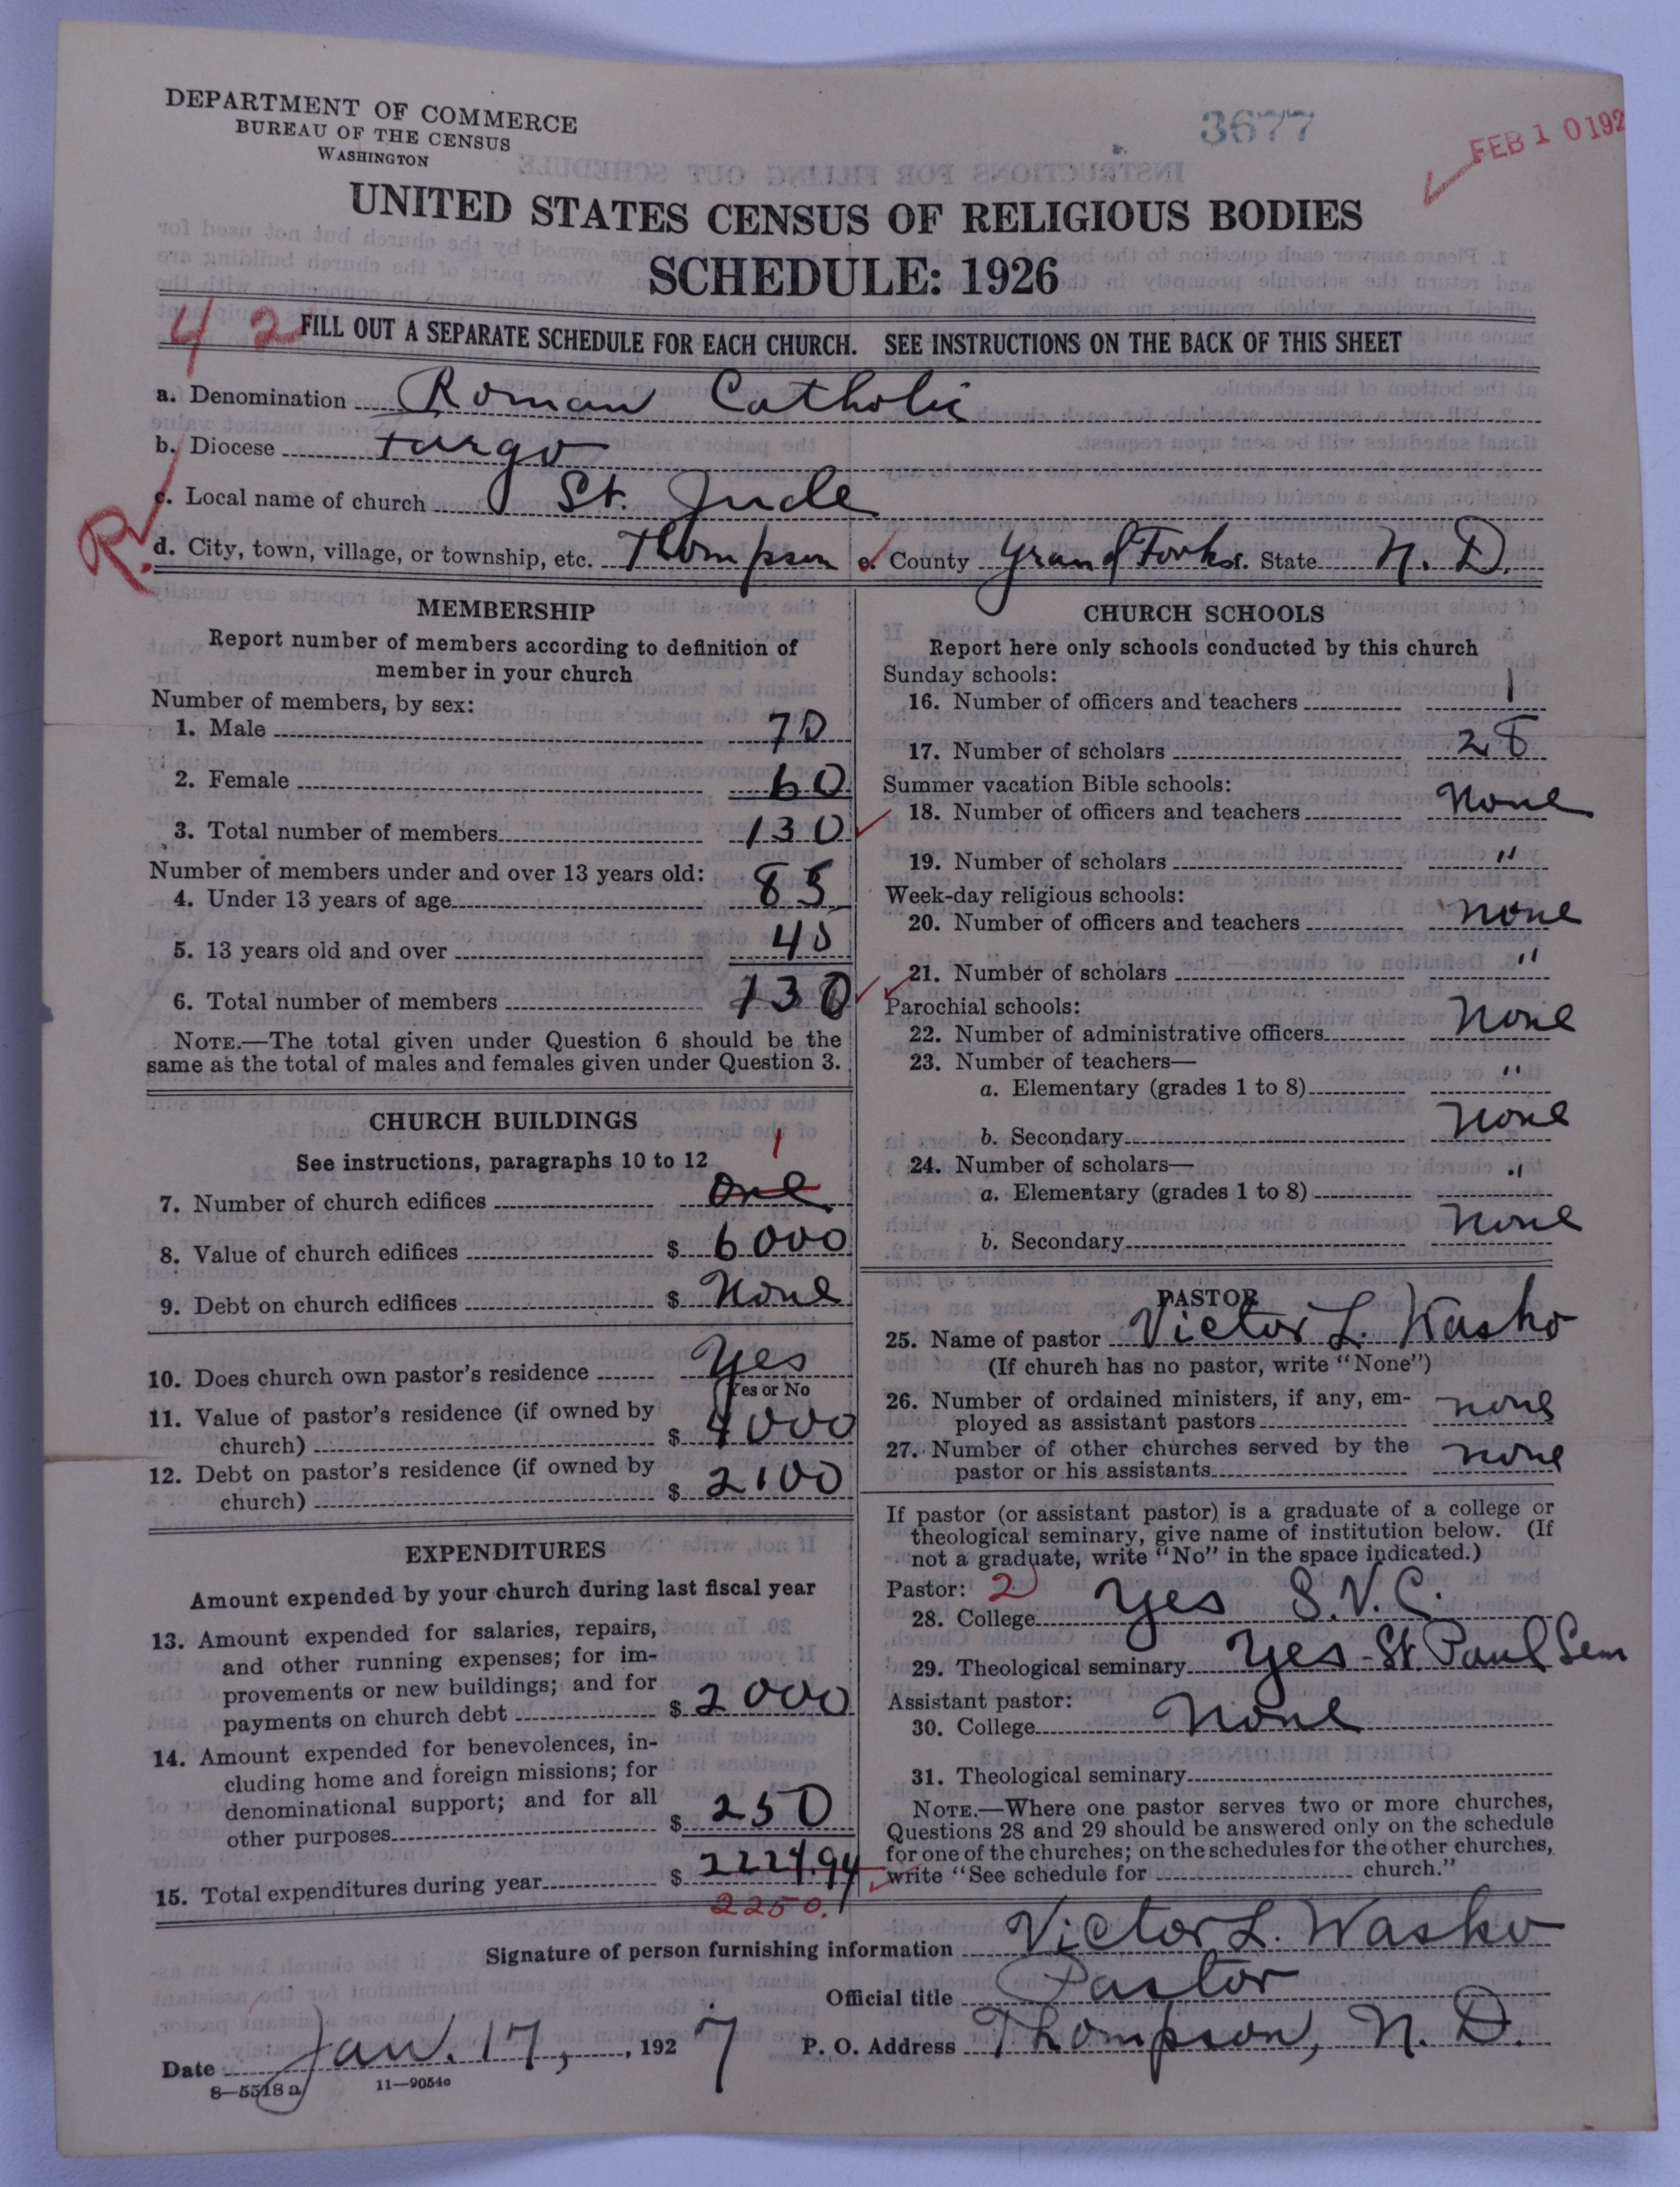 DEPARTMENT OF COMMERCE
BUREAU OF THE CENSUS
WASHINGTON
3677
FEB 10 192
UNITED STATES CENSUS OF RELIGIOUS BODIES
SCHEDULE: 1926
42
FILL OUT A SEPARATE SCHEDULE FOR EACH CHURCH. SEE INSTRUCTIONS ON THE BACK OF THIS SHEET
a. Denomination Roman Catholic
b. Diocese Fargo
c. Local name of church St. Jude
R.
d. City, town, village, or township, etc. Thompson e. County Grand Forks f. State N. D.
MEMBERSHIP
Report number of members according to definition of
member in your church
Number of members, by sex:
1. Male 70
2. Female 60
3. Total number of members 130
Number of members under and over 13 years old:
4. Under 13 years of age 85
5. 13 years old and over 45
6. Total number of members 130
NOTE.—The total given under Question 6 should be the
same as the total of males and females given under Question 3.
CHURCH BUILDINGS
See instructions, paragraphs 10 to 12
1
7. Number of church edifices one
8. Value of church edifices $ 6000
9. Debt on church edifices $ None
10. Does church own pastor's residence Yes
Yes or No
11. Value of pastor's residence (if owned by
church) $ 4000
12. Debt on pastor's residence (if owned by
church) $ 2100
EXPENDITURES
Amount expended by your church during last fiscal year
13. Amount expended for salaries, repairs,
and other running expenses; for im-
provements or new buildings; and for
payments on church debt $ 2000
14. Amount expended for benevolences, in-
cluding home and foreign missions; for
denominational support; and for all
other purposes $ 250
15. Total expenditures during year $ 2224.94
2250.
CHURCH SCHOOLS
Report here only schools conducted by this church
Sunday schools:
16. Number of officers and teachers 1
17. Number of scholars 28
Summer vacation Bible schools:
18. Number of officers and teachers None
19. Number of scholars "
Week-day religious schools:
20. Number of officers and teachers none
21. Number of scholars "
Parochial schools:
22. Number of administrative officers None
23. Number of teachers—
a. Elementary (grades 1 to 8) "
b. Secondary None
24. Number of scholars—
a. Elementary (grades 1 to 8) "
b. Secondary None
PASTOR
25. Name of pastor Victor L. Wasko
(If church has no pastor, write "None")
26. Number of ordained ministers, if any, em-
ployed as assistant pastors none
27. Number of other churches served by the
pastor or his assistants none
If pastor (or assistant pastor) is a graduate of a college or
theological seminary, give name of institution below. (If
not a graduate, write "No" in the space indicated.)
Pastor: 2
28. College Yes S.V.C.
29. Theological seminary Yes - St. Paul Sem
Assistant pastor:
30. College None
31. Theological seminary
NOTE.—Where one pastor serves two or more churches,
Questions 28 and 29 should be answered only on the schedule
for one of the churches; on the schedules for the other churches,
write "See schedule for church."
Signature of person furnishing information Victor L. Wasko
Official title Pastor
Date Jan. 17, 1927 P. O. Address Thompson, N. D.
8—5518 a 11—9054c